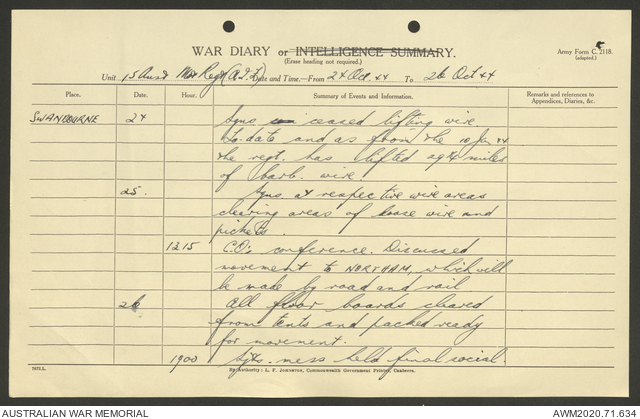 WAR DIARY or INTELLIGENCE SUMMARY.
(Erase heading not required.)
Army Form C. 2118.
(adapted.)
Unit 15 Aust Mor Regt (A.I.F.) Date and Time.—From 24 Oct. 44 To 26 Oct 44
Place. Date. Hour. Summary of Events and Information. Remarks and references to Appendices, Diaries, &c.
SWANBOURNE 24 Sqns ceased lifting wire.
To date and as from the 10 Jan 44
the regt. has lifted miles
of barb. wire.
25. Sqns at respective wire areas
clearing areas of loose wire and
pickets.
1215 C.O's conference. Discussed
movement to NORTHAM, which will
be made by road and rail
26 All floor boards cleared
from tents and packed ready
for movement.
1900 Sgts. mess held final social.
By Authority: L. F. JOHNSTON, Commonwealth Government Printer, Canberra.
AUSTRALIAN WAR MEMORIAL
AWM2020.71.634